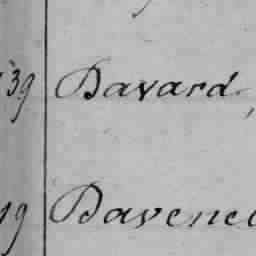 39 Davard,
19 Davene